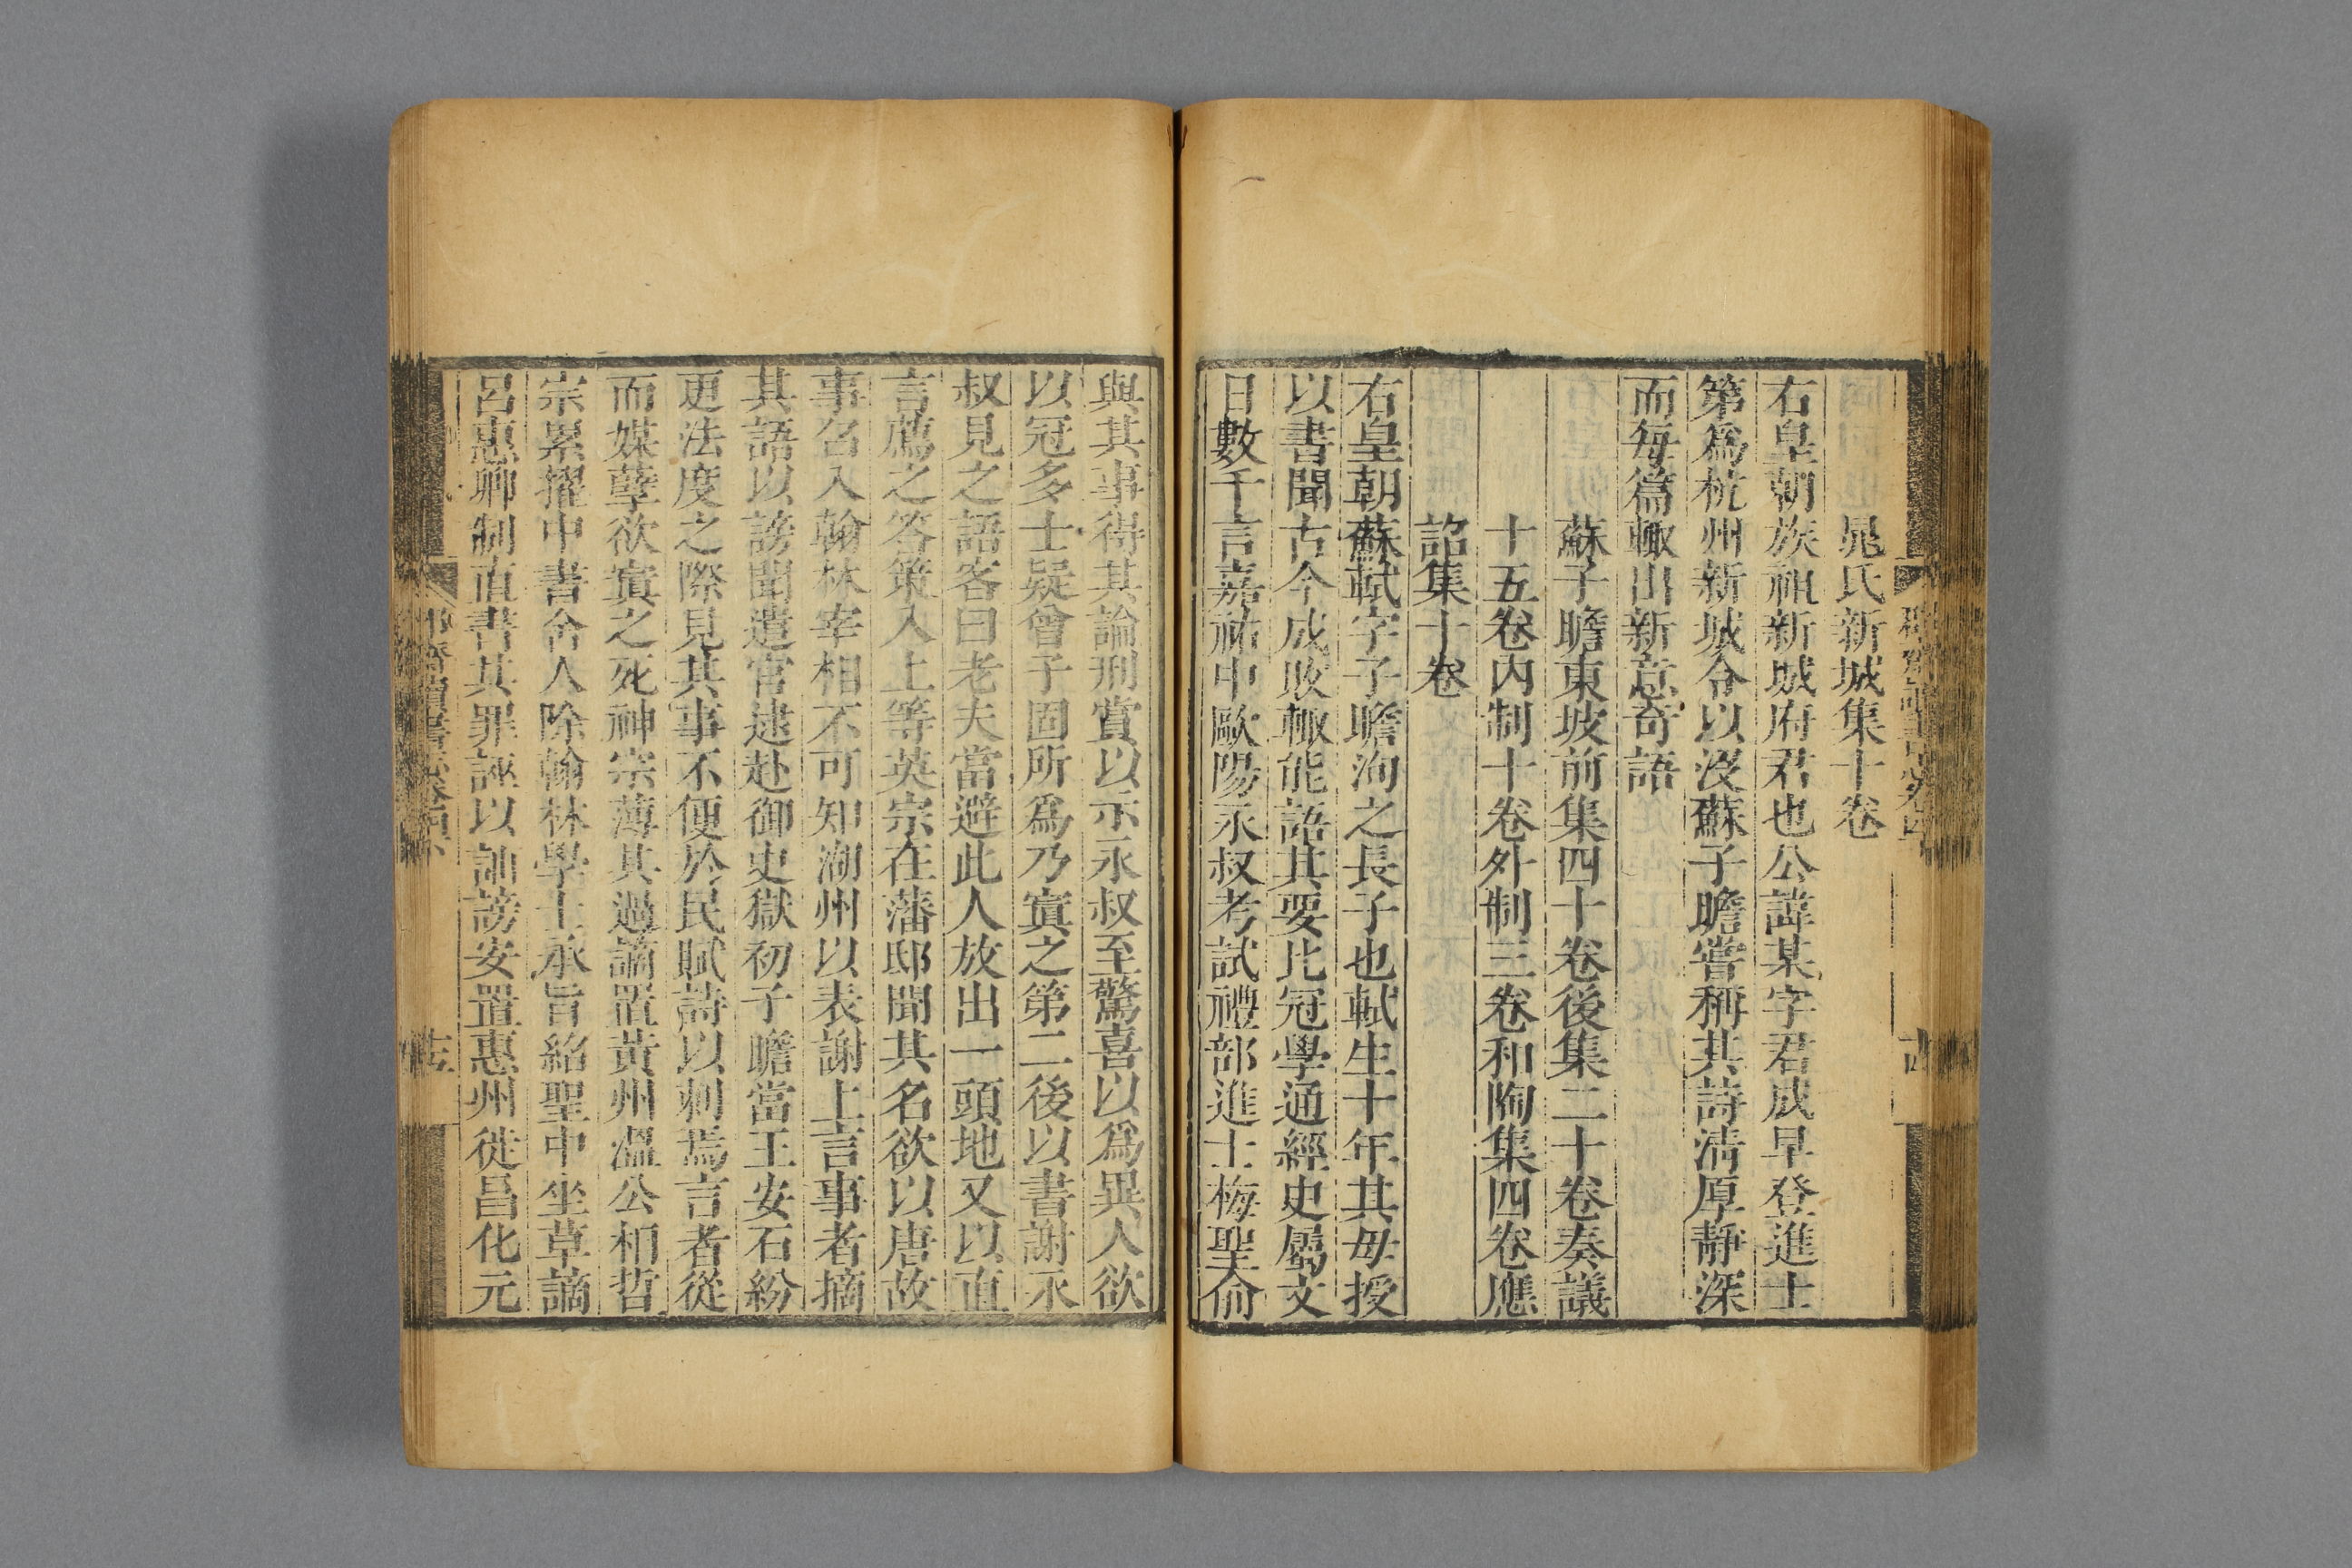 晁氏新城集十卷
右皇朝族祖新城府君也公諱某字君成早登進士
第爲杭州新城令以沒蘇子瞻嘗稱其詩清厚靜深
而每篇輒出新意奇語
蘇子瞻東坡前集四十卷後集二十卷奏議
十五卷內制十卷外制三卷和陶集四卷應
詔集十卷
右皇朝蘇軾字子瞻洵之長子也軾生十年其母授
以書聞古今成敗輒能語其要比冠學通經史屬文
日數千言嘉祐中歐陽永叔考試禮部進士梅聖俞
與其事得其論刑賞以示永叔至驚喜以爲異人欲
以冠多士疑曾子固所爲乃寘之第二後以書謝永
叔見之語客曰老夫當避此人放出一頭地又以直
言薦之答策入上等英宗在藩邸聞其名欲以唐故
事召入翰林宰相不可知湖州以表謝上言事者摘
其語以謗聞遣官逮赴御史獄初子瞻當王安石紛
更法度之際見其事不便於民賦詩以刺焉言者從
而媒孽欲寘之死神宗薄其過謫置黃州溫公相哲
宗累擢中書舍人除翰林學士承旨紹聖中坐草謫
呂惠卿制直書其罪誣以訕謗安置惠州徙昌化元